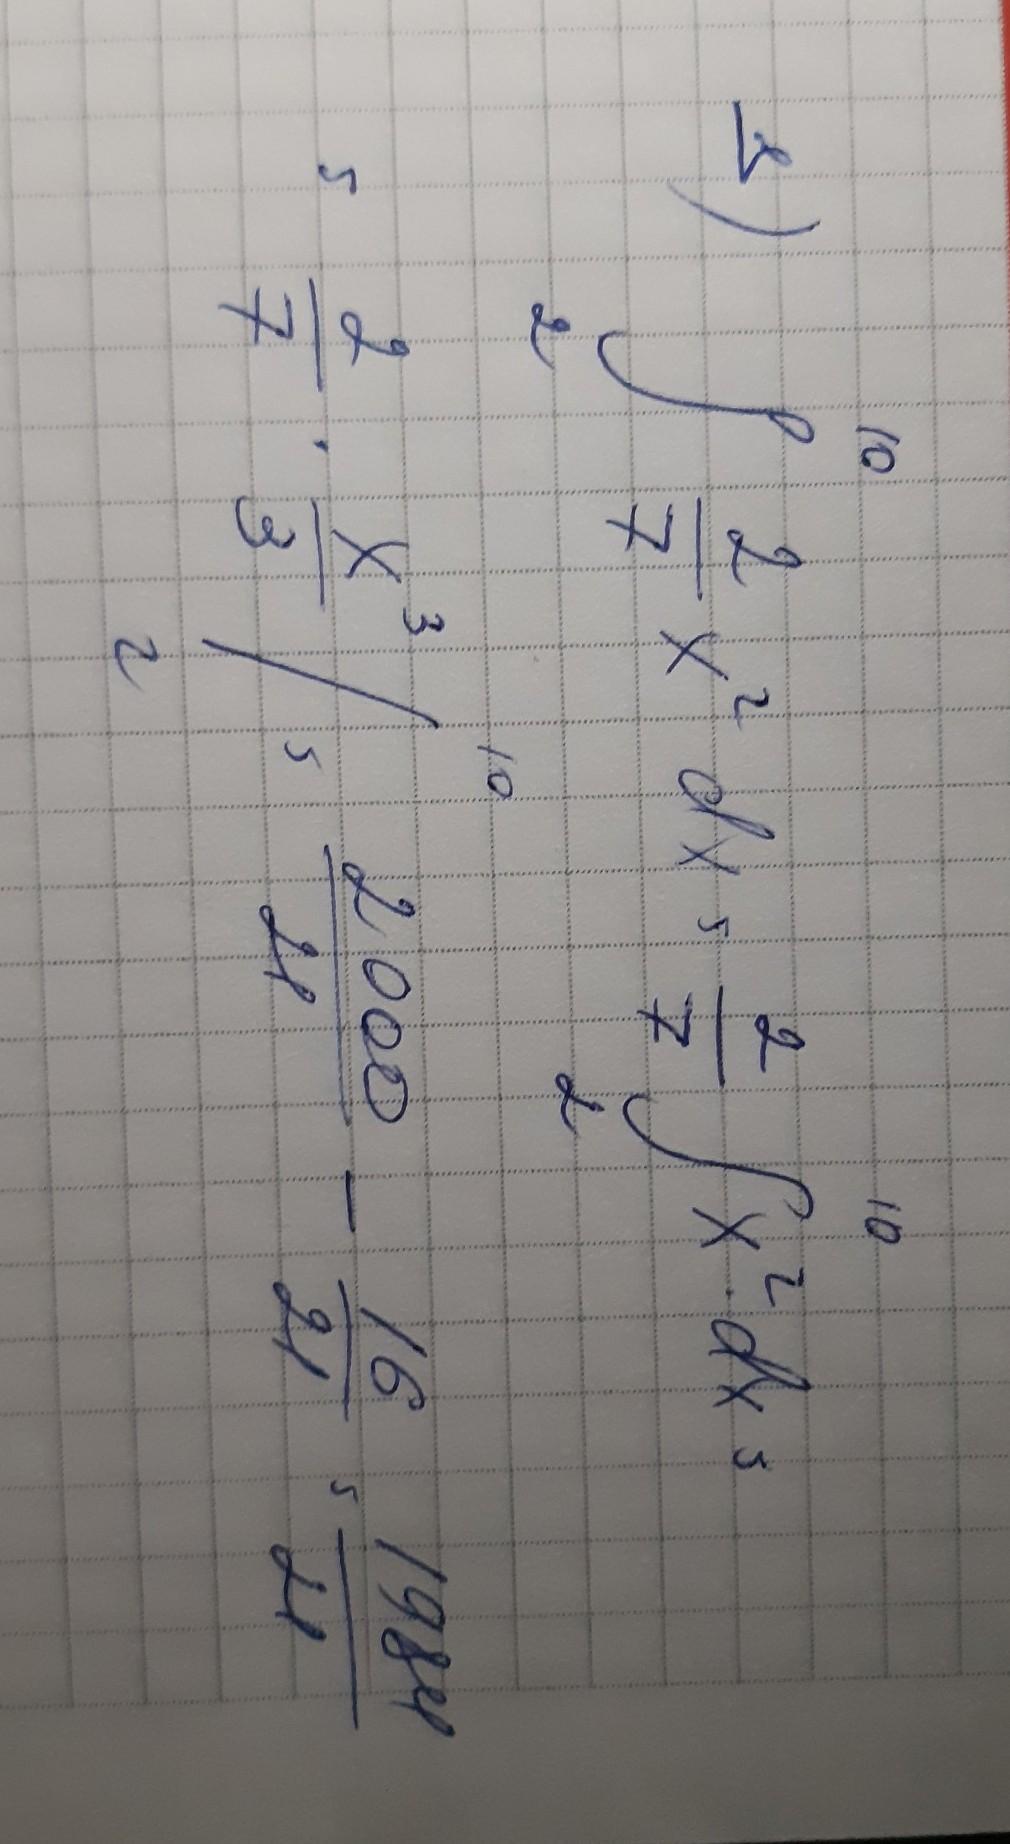 1) ∫₂¹⁰ 2/7 x² dx = 2/7 ∫₂¹⁰ x² · dx =
= 2/7 · x³/3 /₂¹⁰ = 2000/21 − 16/21 = 1984/21